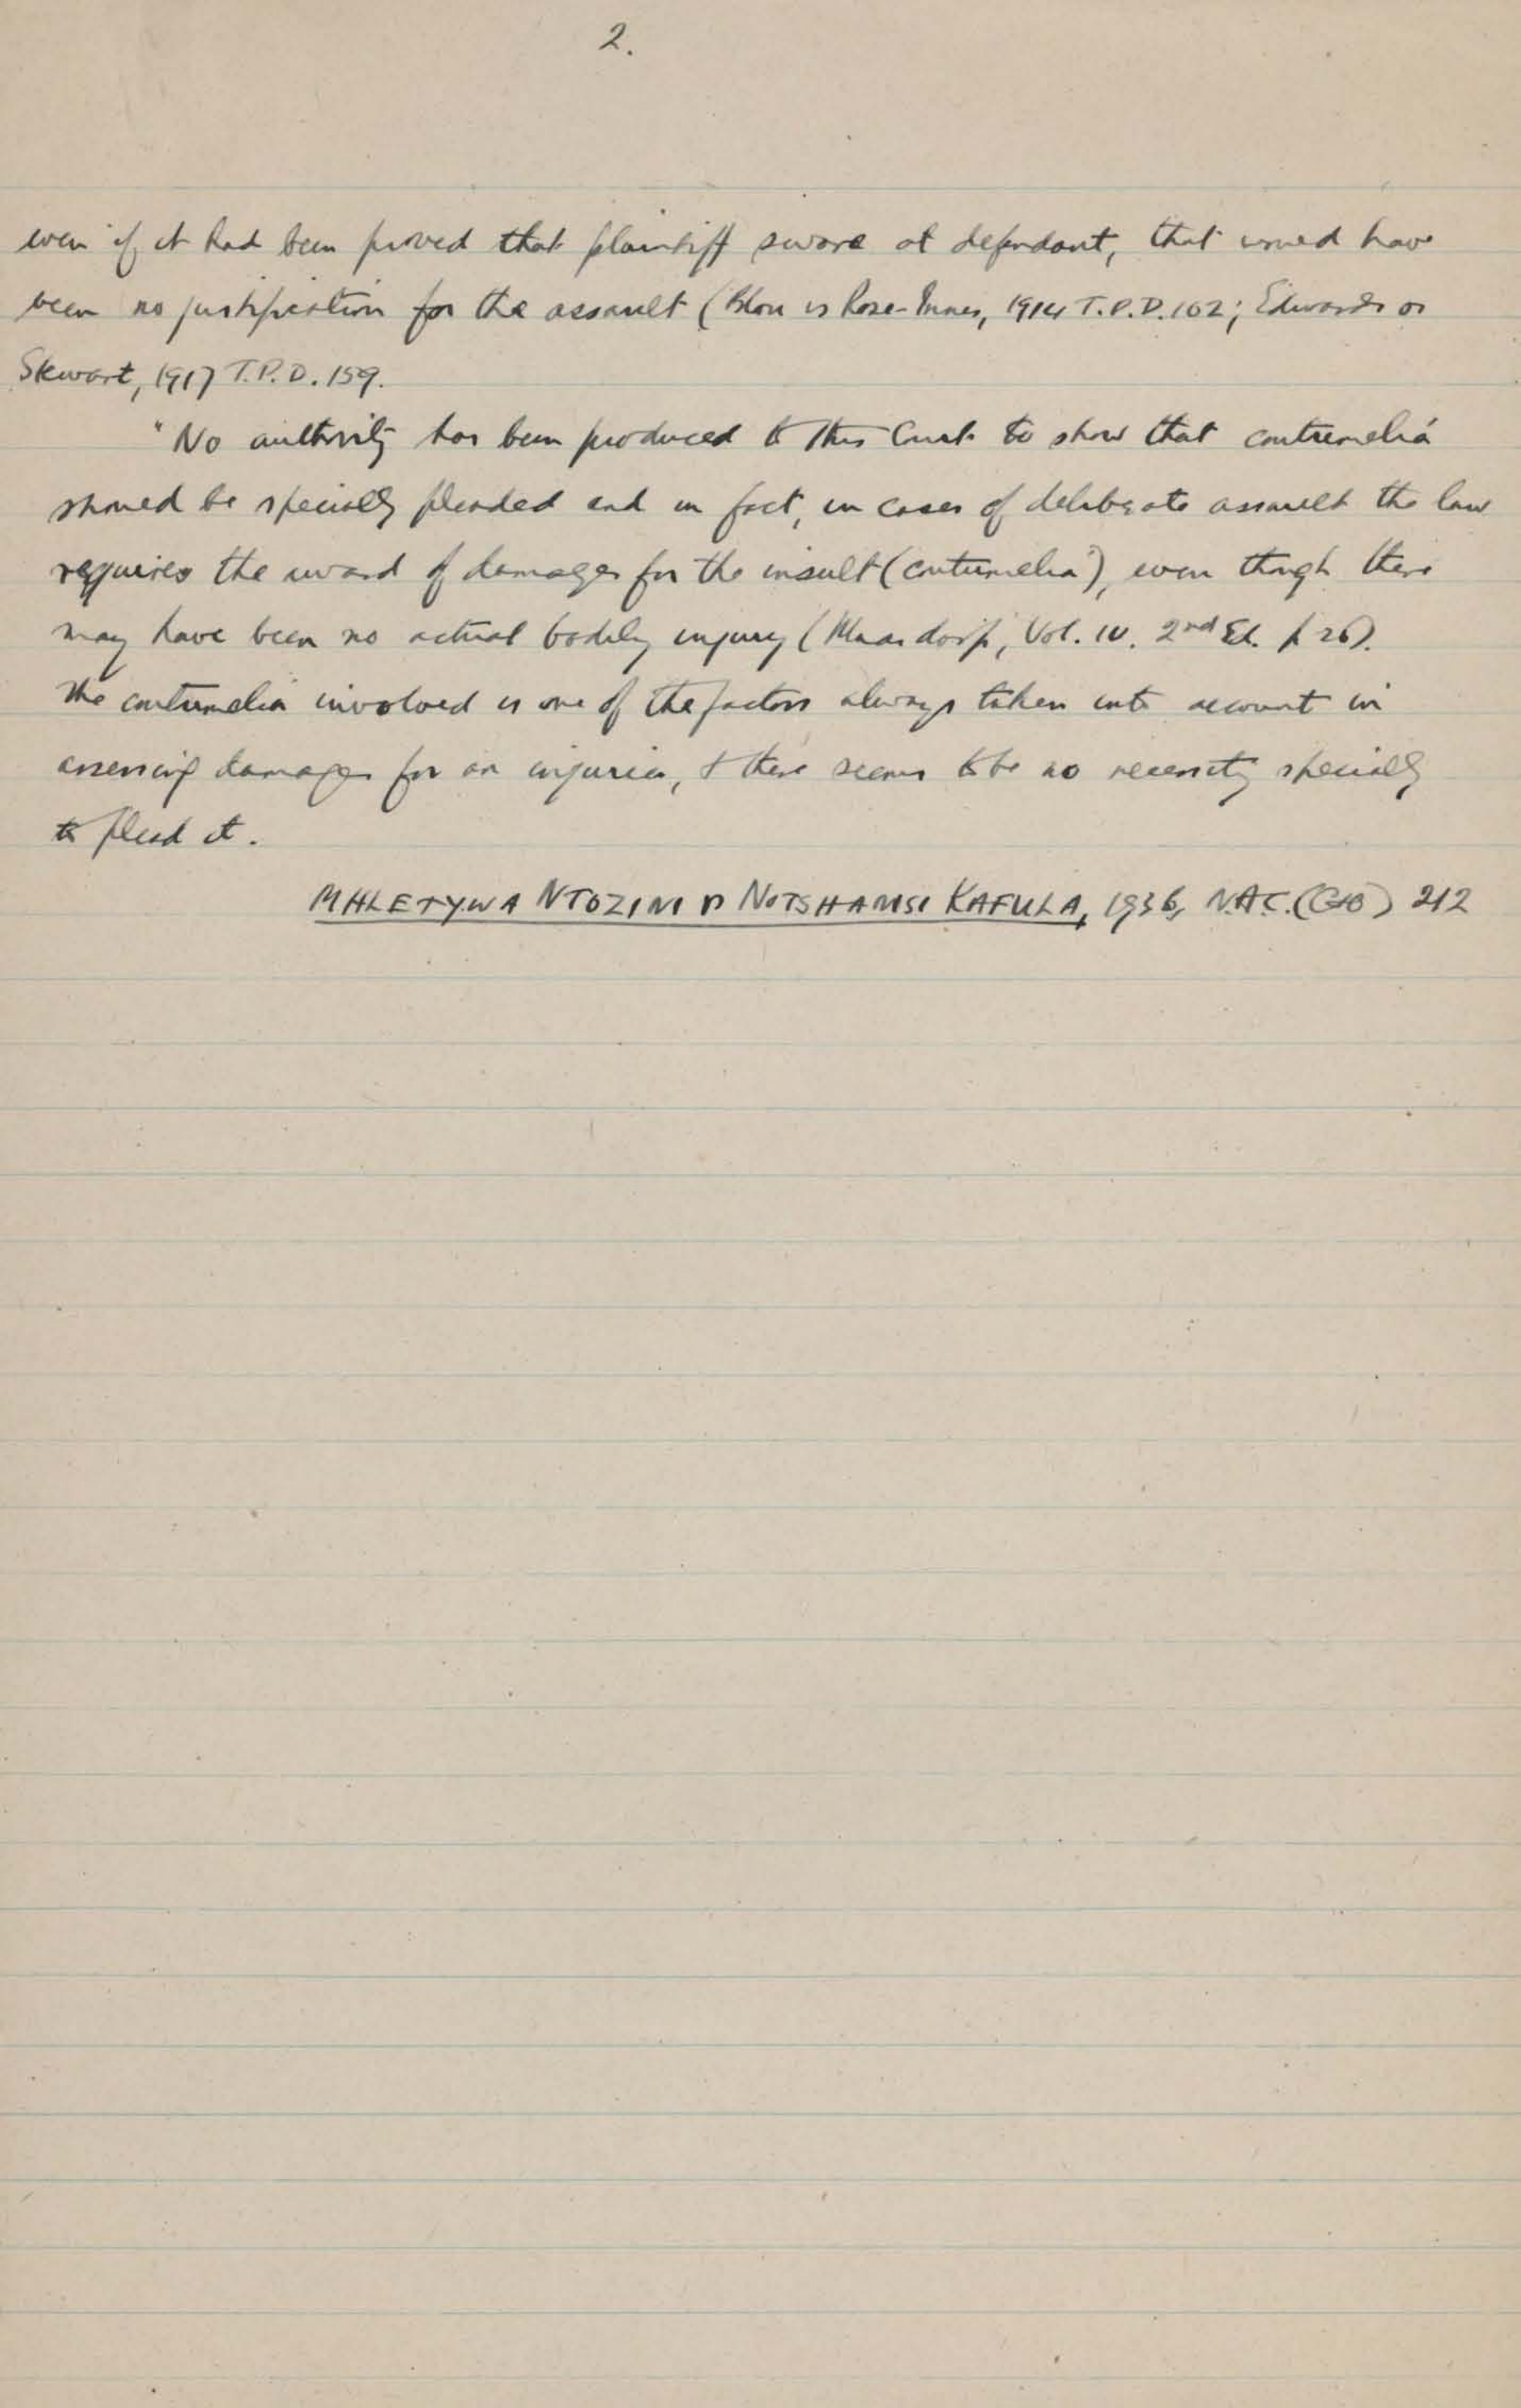 2.
even if it had been proved that plaintiff swore at defendant, that would have
been no justification for the assault (Blou vs Rose-Innes, 1914 T.P.D. 102; Edwards vs
Stewart, 1917 T.P.D. 159.
"No authority has been produced to this Court to show that contumelia
should be specially pleaded and in fact, in cases of deliberate assault the law
requires the award of damages for the insult (contumelia), even though there
may have been no actual bodily injury (Maasdorp, Vol. IV. 2nd Ed. p 26).
The contumelia involved is one of the factors always taken into account in
assessing damages for an injuria, & there seems to be no necessity specially
to plead it.
MHLETYWA NTOZINI v NOTSHAMSI KAFULA, 1936, N.A.C. (C&O) 212